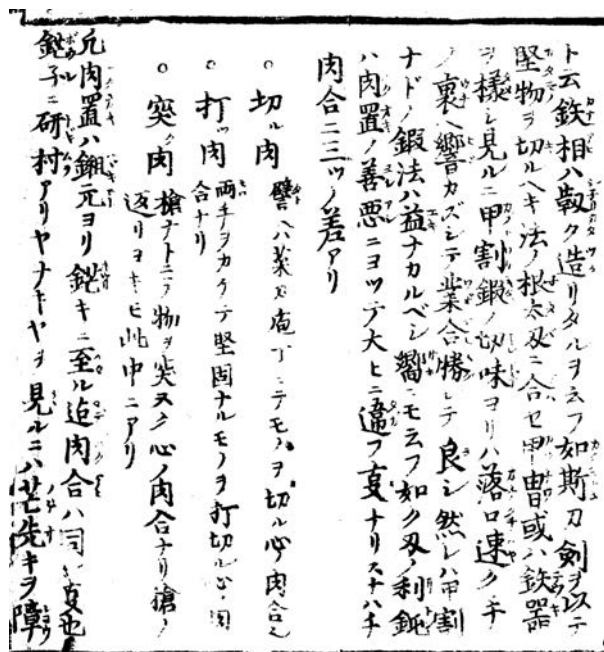 ト云鉄相ハ靱ク造リタルヲ云フ如斯刀劍ヲ以テ
堅物ヲ切ルヘキ法ノ根太刄ニ合セ甲冑或ハ鉄器
ヲ様シ見ルニ甲割鍜ノ切味ヨリハ落口速クチ
ノ裏ヘ響カズシテ業合勝レテ良シ然レハ甲割
ナドノ鍜法ハ益ナカルベシ嚮ニモ云フ如ク刄ノ利鈍
ハ肉置ノ善悪ニヨツテ大ヒニ違フ叓ナリスナハチ
肉合ニ三ツノ差アリ
○ 切ル肉 譬ヘハ菜刀庖丁ニテモノヲ切ル心ノ肉合也
○ 打ツ肉 両手ヲカケテ堅固ナルモノヲ打切ル心ノ肉
合ナリ
○ 突ク肉 槍ナトニテ物ヲ突ヌク心ノ肉合ナリ槍ノ
返リヨキモ此中ニアリ
凡肉置ハ鎺元ヨリ鋩キニ至ル迠肉合ハ同シ叓也
鋩子ニ研村アリヤナキヤヲ見ルニハ芒先キヲ障